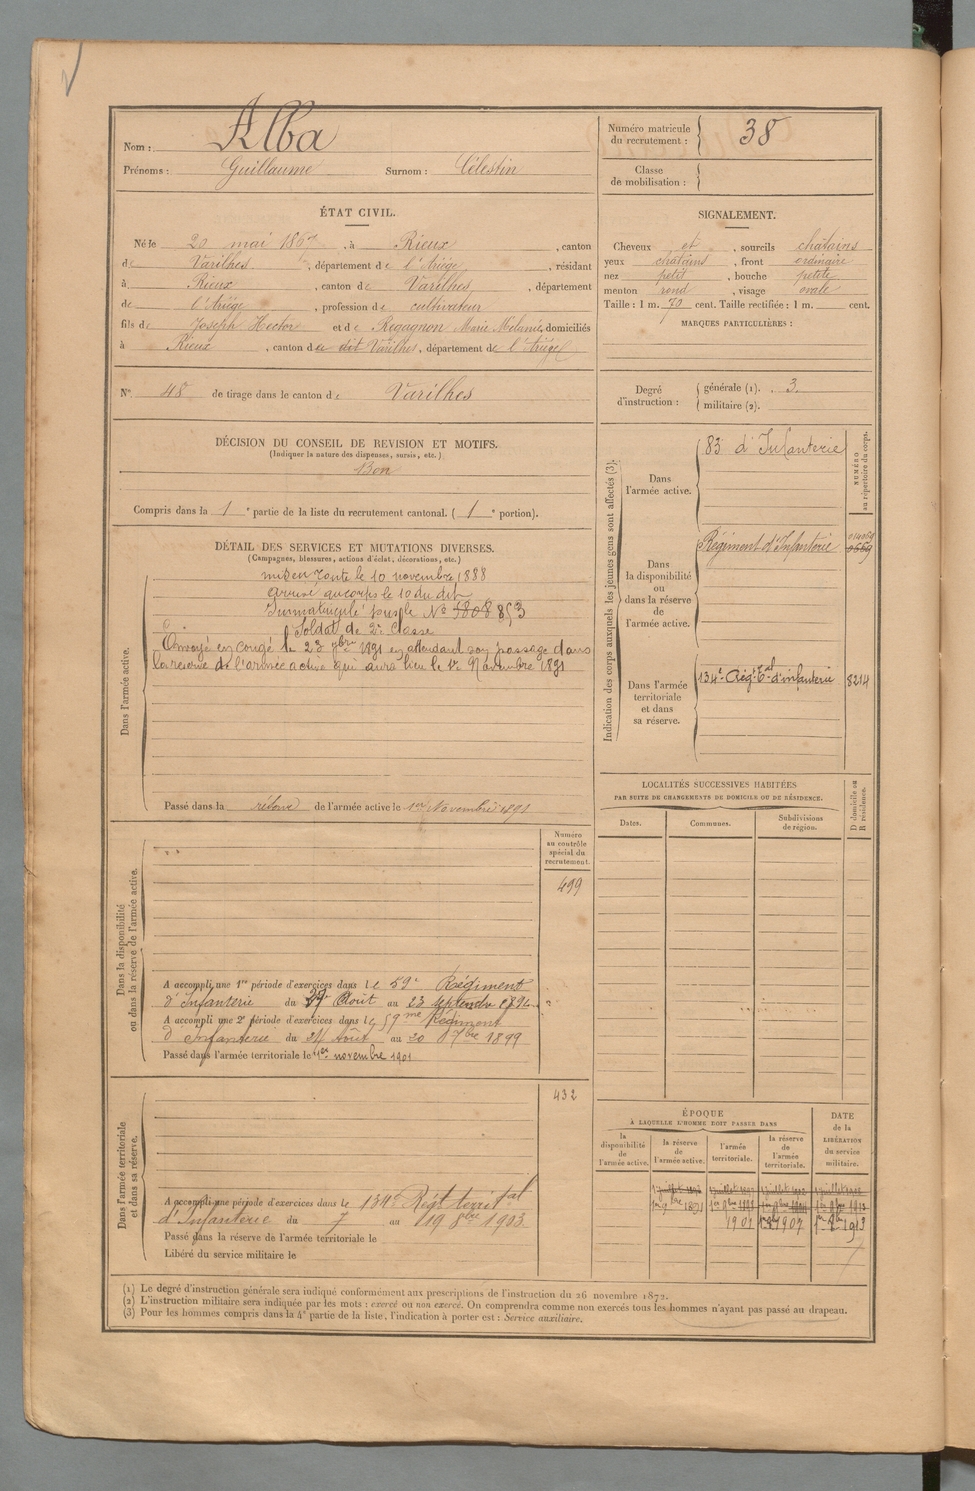 Nom : Alba
Prénoms : Guillaume Surnom : Célestin
Numéro matricule du recrutement : 38
Classe de mobilisation :
ÉTAT CIVIL.
Né le 20 mai 1867, à Rieux, canton
de Varilhes, département de l'Ariége, résidant
à Rieux, canton de Varilhes, département
de l'Ariége, profession de cultivateur
fils de Joseph Hector et de Regagnon Marie Mélanie, domiciliés
à Rieux, canton de dit Varilhes, département de l'Ariége
N° 48 de tirage dans le canton de Varilhes
DÉCISION DU CONSEIL DE REVISION ET MOTIFS.
(Indiquer la nature des dispenses, sursis, etc.)
Bon
Compris dans la 1e partie de la liste du recrutement cantonal. ( 1e portion).
SIGNALEMENT.
Cheveux et, sourcils chatains
yeux chatains, front ordinaire
nez petit, bouche petite
menton rond, visage ovale
Taille : 1 m. 70 cent. Taille rectifiée : 1 m. cent.
MARQUES PARTICULIÈRES :
Degré d'instruction : générale (1). 3.
militaire (2).
DÉTAIL DES SERVICES ET MUTATIONS DIVERSES.
(Campagnes, blessures, actions d'éclat, décorations, etc.)
Dans l'armée active.
mis en route le 10 novembre 1888
arrivé au corps le 10 du dit
Immatriculé sous le N° 5808 853
Soldat de 2e classe
Envoyé en congé le 23 7bre 1891 en attendant son passage dans
la réserve de l'armée active qui aura lieu le 1er Novembre 1891
Passé dans la réserve de l'armée active le 1er Novembre 1891
Indication des corps auxquels les jeunes gens sont affectés (3).
NUMÉRO au répertoire du corps.
Dans l'armée active.
83e d'Infanterie
Dans la disponibilité ou dans la réserve de l'armée active.
Régiment d'Infanterie
Dans l'armée territoriale et dans sa réserve.
134e Régt Tal d'infanterie 8214
LOCALITÉS SUCCESSIVES HABITÉES
PAR SUITE DE CHANGEMENTS DE DOMICILE OU DE RÉSIDENCE.
Dates. Communes. Subdivisions de région. D domicile ou R résidence.
Dans la disponibilité ou dans la réserve de l'armée active.
Numéro au contrôle spécial du recrutement.
499
A accompli une 1re période d'exercices dans le 59e Régiment
d'Infanterie du 27 Août au 23 septembre 1894
A accompli une 2e période d'exercices dans le 59me Régiment
d'Infanterie du 24 Août au 20 7bre 1899
Passé dans l'armée territoriale le 1er novembre 1901
Dans l'armée territoriale et dans sa réserve.
432
A accompli une période d'exercices dans le 134e Régt territal
d'Infanterie du 7 au 19 8bre 1903
Passé dans la réserve de l'armée territoriale le
Libéré du service militaire le
ÉPOQUE
À LAQUELLE L'HOMME DOIT PASSER DANS
la disponibilité de l'armée active. la réserve de l'armée active. l'armée territoriale. la réserve de l'armée territoriale.
DATE de la LIBÉRATION du service militaire.
1er 9bre 1891
1901 1er 8bre 1907 1er 8bre 1913
(1) Le degré d'instruction générale sera indiqué conformément aux prescriptions de l'instruction du 26 novembre 1872.
(2) L'instruction militaire sera indiquée par les mots : exercé ou non exercé. On comprendra comme non exercés tous les hommes n'ayant pas passé au drapeau.
(3) Pour les hommes compris dans la 4e partie de la liste, l'indication à porter est : Service auxiliaire.